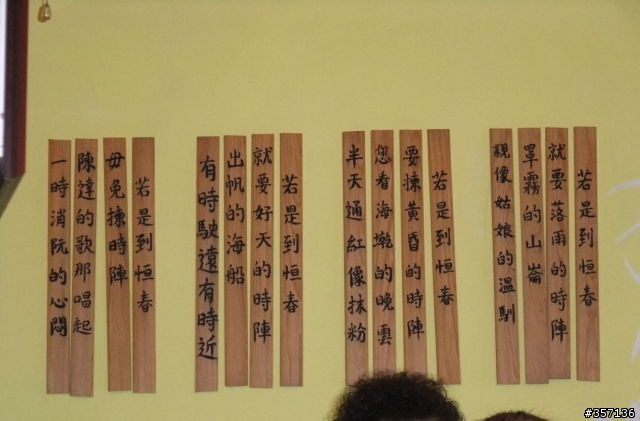 若是到恒春
就要落雨的時陣
罩霧的山崙
親像姑娘的溫馴
若是到恒春
要揀黃昏的時陣
您看海墘的晚雲
半天通紅像抹粉
若是到恒春
就要好天的時陣
出帆的海船
有時駛遠有時近
若是到恒春
毋免揀時陣
陳達的歌那唱起
一時消阮的心悶
#357136